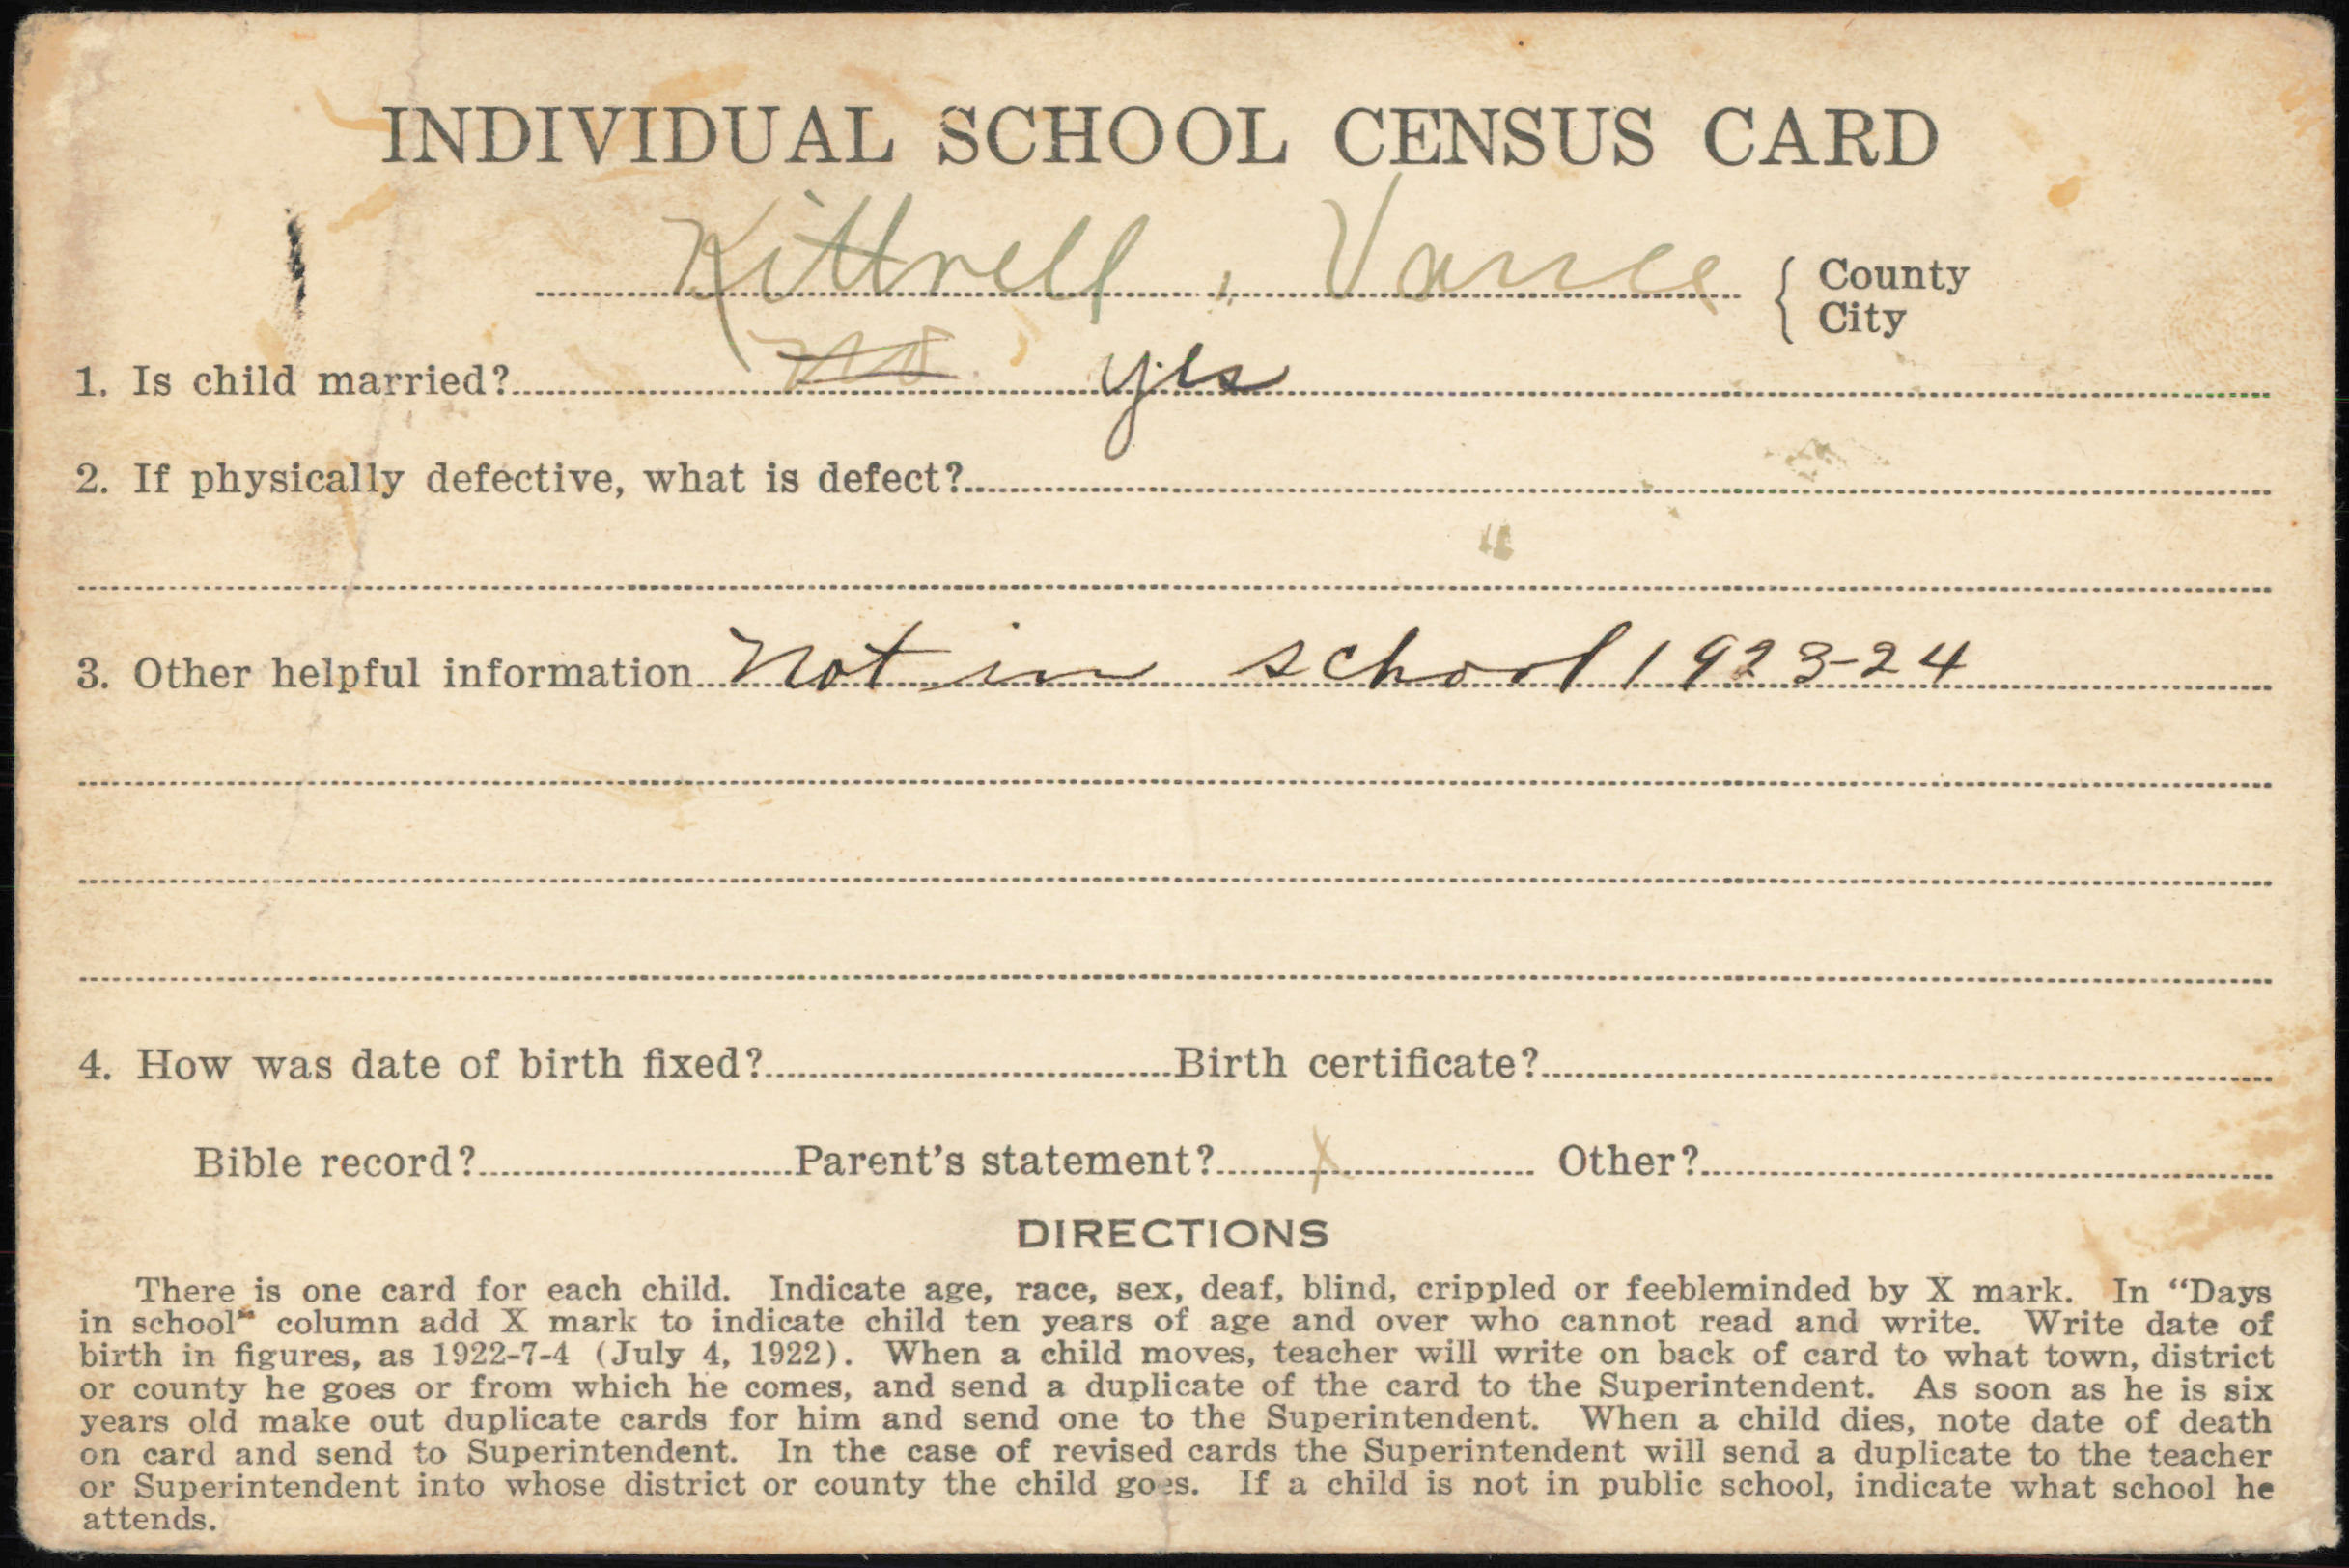 INDIVIDUAL SCHOOL CENSUS CARD
Kittrell, Vance { County City
1. Is child married? no yes
2. If physically defective, what is defect?
3. Other helpful information Not in school 1923-24
4. How was date of birth fixed? Birth certificate?
Bible record? Parent's statement? X Other?
DIRECTIONS
There is one card for each child. Indicate age, race, sex, deaf, blind, crippled or feebleminded by X mark. In "Days
in school" column add X mark to indicate child ten years of age and over who cannot read and write. Write date of
birth in figures, as 1922-7-4 (July 4, 1922). When a child moves, teacher will write on back of card to what town, district
or county he goes or from which he comes, and send a duplicate of the card to the Superintendent. As soon as he is six
years old make out duplicate cards for him and send one to the Superintendent. When a child dies, note date of death
on card and send to Superintendent. In the case of revised cards the Superintendent will send a duplicate to the teacher
or Superintendent into whose district or county the child goes. If a child is not in public school, indicate what school he
attends.